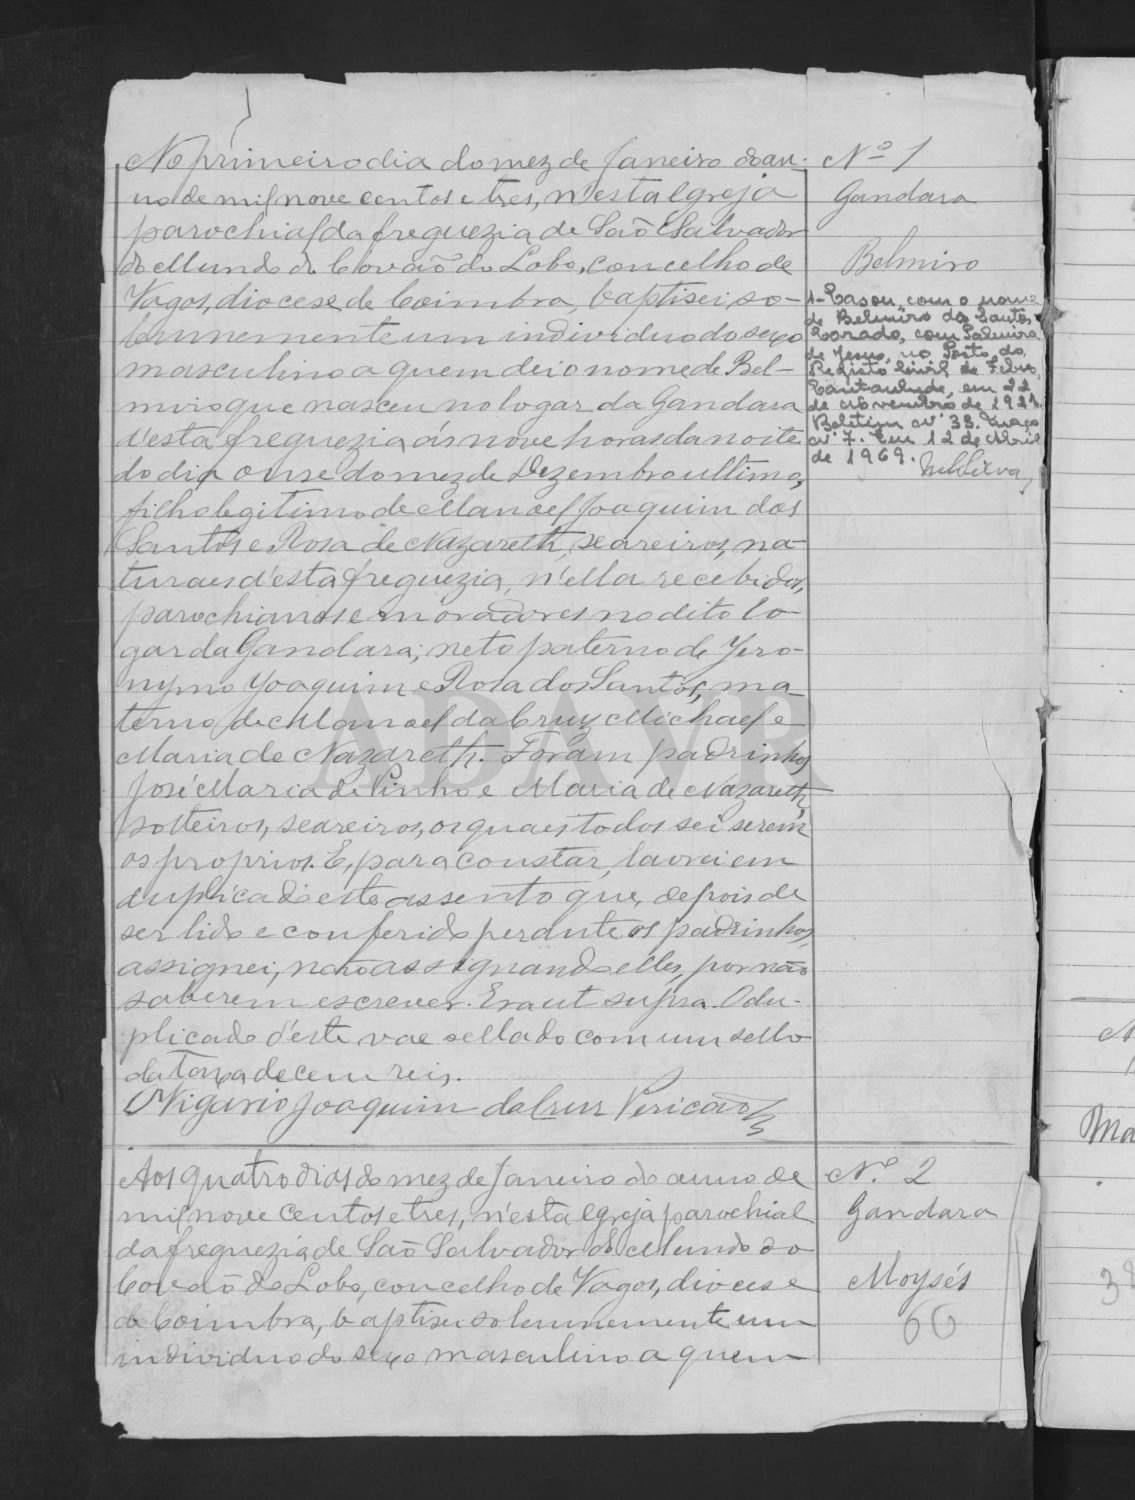 No primeiro dia do mez de Janeiro do an-
no de mil nove centos e tres, n'esta Egreja
parochial da freguezia de São Salvador
do Mundo do Covão do Lobo, concelho de
Vagos, diocese de Coimbra, baptisei so-
lemnemente um individuo do sexo
masculino a quem dei o nome de Bel-
miro que nasceu no logar da Gandara
d'esta freguezia ás nove horas da noite
do dia onse do mez de Dezembro ultimo,
filho legitimo de Manoel Joaquim dos
Santos e Rosa de Nazareth, seareiros, na-
turaes d'esta freguezia, n'ella recebidos,
parochianos e moradores no dito lo-
gar da Gandara; neto paterno de Jero-
nymo Joaquim e Rosa dos Santos, ma-
terno de Manoel da Cruz Michael e
Maria de Nazareth. Foram padrinhos
José Maria de Pinho e Maria de Nazareth,
solteiros, seareiros, os quaes todos sei serem
os proprios. E, para constar, lavrei em
duplicado este assento que, depois de
ser lido e conferido perante os padrinhos,
assignei, não assignando elles, por não
saberem escrever. Era ut supra. O du-
plicado d'este vae sellado com um sello
da Taxa de cem reis.
O Vigario Joaquim da Cruz Pericão
Nº 1
Gandara
Belmiro
1-Casou, com o nome
de Belmiro dos Santos
com Palmira
de Jesus, no Posto do
Registo Civil de Febres,
Cantanhede, em 22
de Novembro de 192
Boletim nº 33. Maço
nº 7. Em 12 de Abril
de 1969.
Aos quatro dias do mez de Janeiro do anno de
mil nove centos e tres, n'esta Egreja parochial
da freguezia de São Salvador do Mundo do
Covão do Lobo, concelho de Vagos, diocese
de Coimbra, baptisei solemnemente um
individuo do sexo masculino a quem
Nº 2
Gandara
Moysés
66
ADAVR
Ma